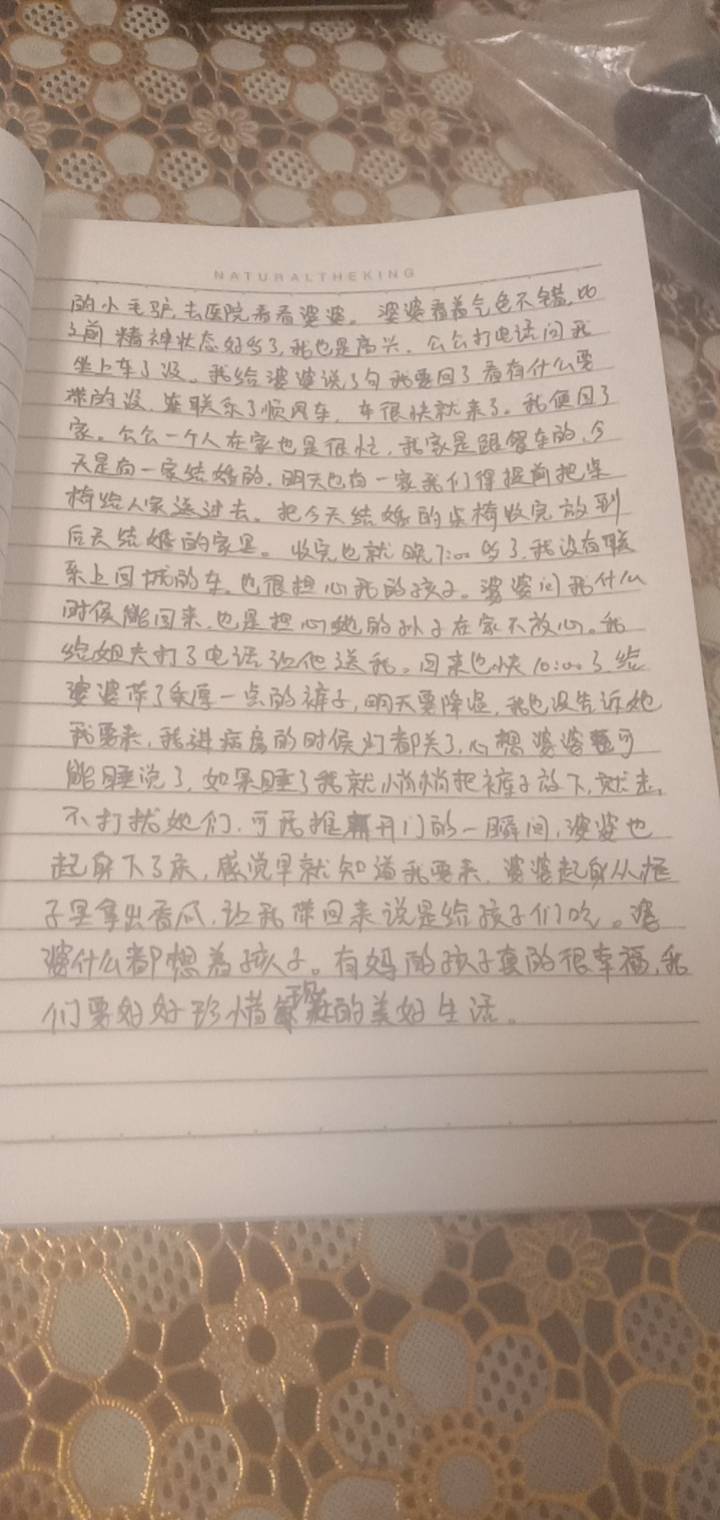 NATURALTHEKING
的小毛驴,去医院看看婆婆。婆婆看着气色不错,比
之前精神状态好多了,我也是高兴。公公打电话问我
坐上车了没。我给婆婆说了句我要回了看有什么要
带的没,联系了顺风车,车很快就来了。我便回了
家。公公一个人在家也是很忙,我家是跟餐车的,今
天是有一家结婚的,明天也有一家我们得提前把桌
椅给人家送过去。把今天结婚的桌椅收完放到
后天结婚的家里。收完也就晚7:00多了,我没有联
系上回城的车,也很担心我的孩子。婆婆问我什么
时候能回来,也是担心她的孙子在家不放心。我
给姐夫打了电话让他送我。回来也快10:00了,给
婆婆带了条厚一点的裤子,明天要降温,我也没告诉她
我要来,我进病房的时候灯都关了,心想婆婆可
能睡觉了,如果睡了我就悄悄把裤子放下,就走,
不打扰她们,可我推开门的一瞬间,婆婆也
起身下了床,感觉早就知道我要来,婆婆起身从柜
子里拿出香瓜,让我带回来说是给孩子们吃。婆
婆什么都想着孩子。有妈的孩子真的很幸福,我
们要好好珍惜现在的美好生活。